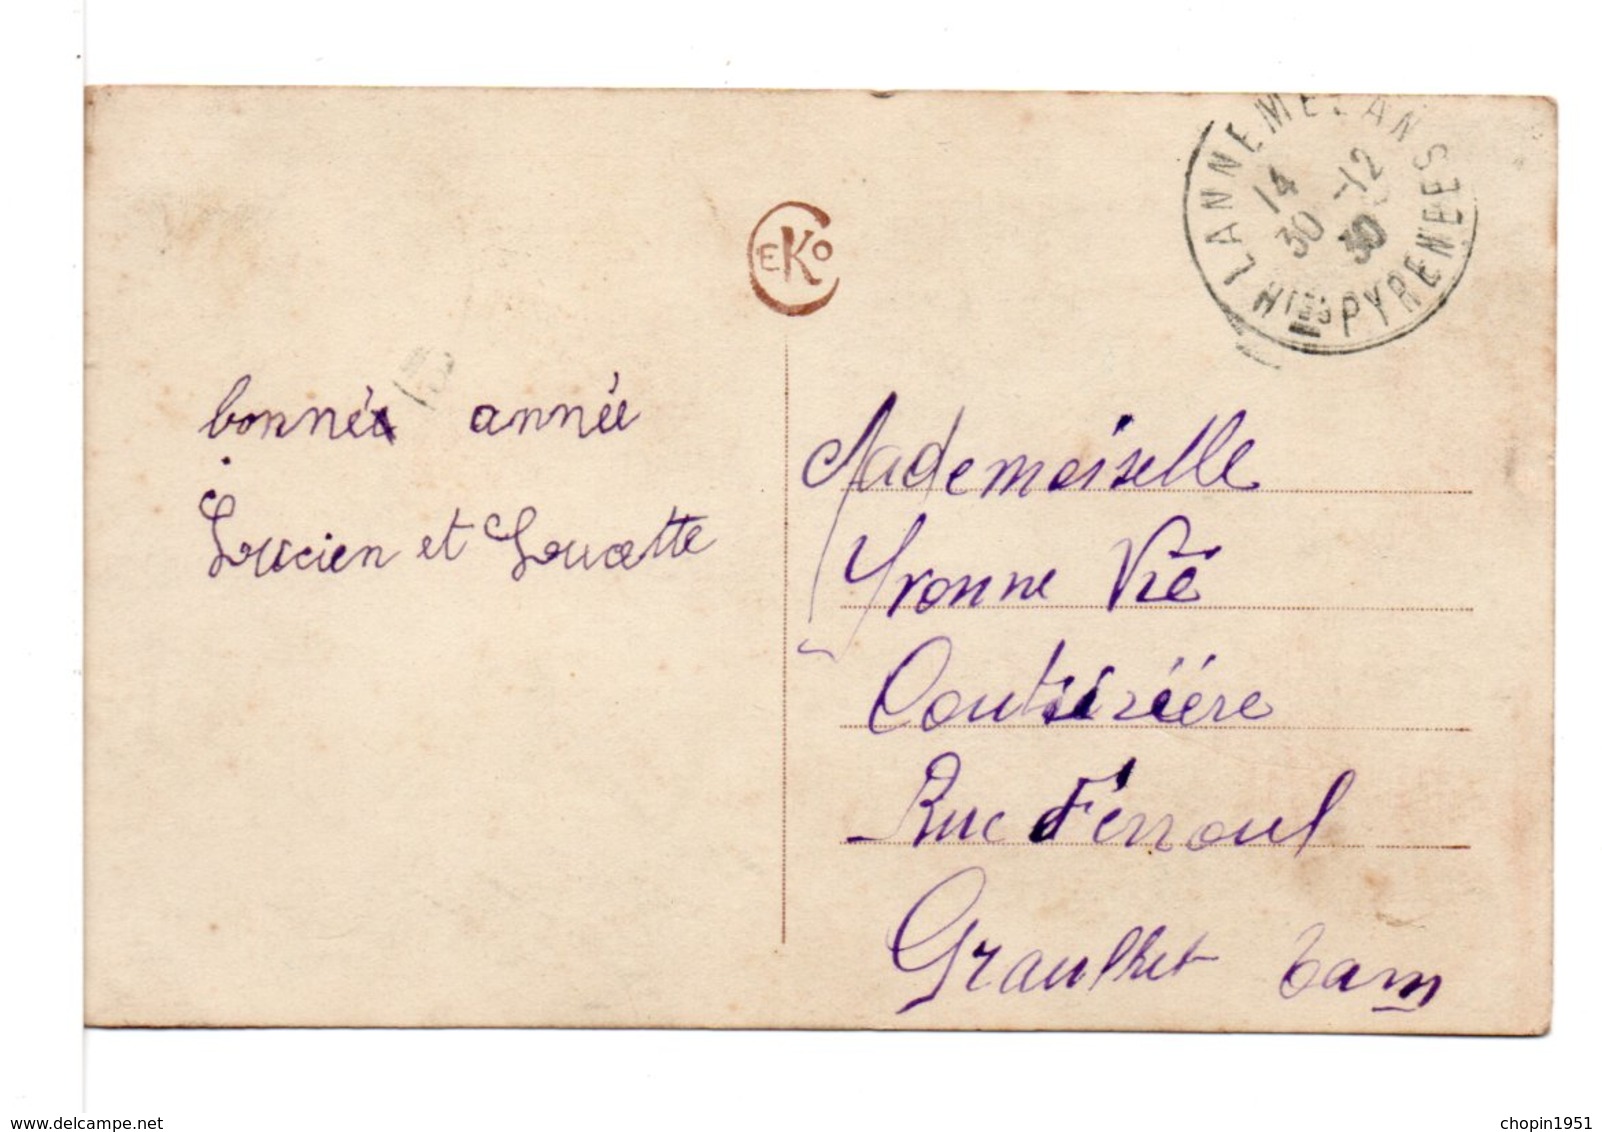 LANNEMEZAN
14
30 -12
30
HTES PYRENEES
EKO
bonnée année
Loucien et Loucette
Mademoiselle
Yvonne Vié
Couturière
Rue Férroul
Graulhet Tarn
www.delcampe.net
chopin1951